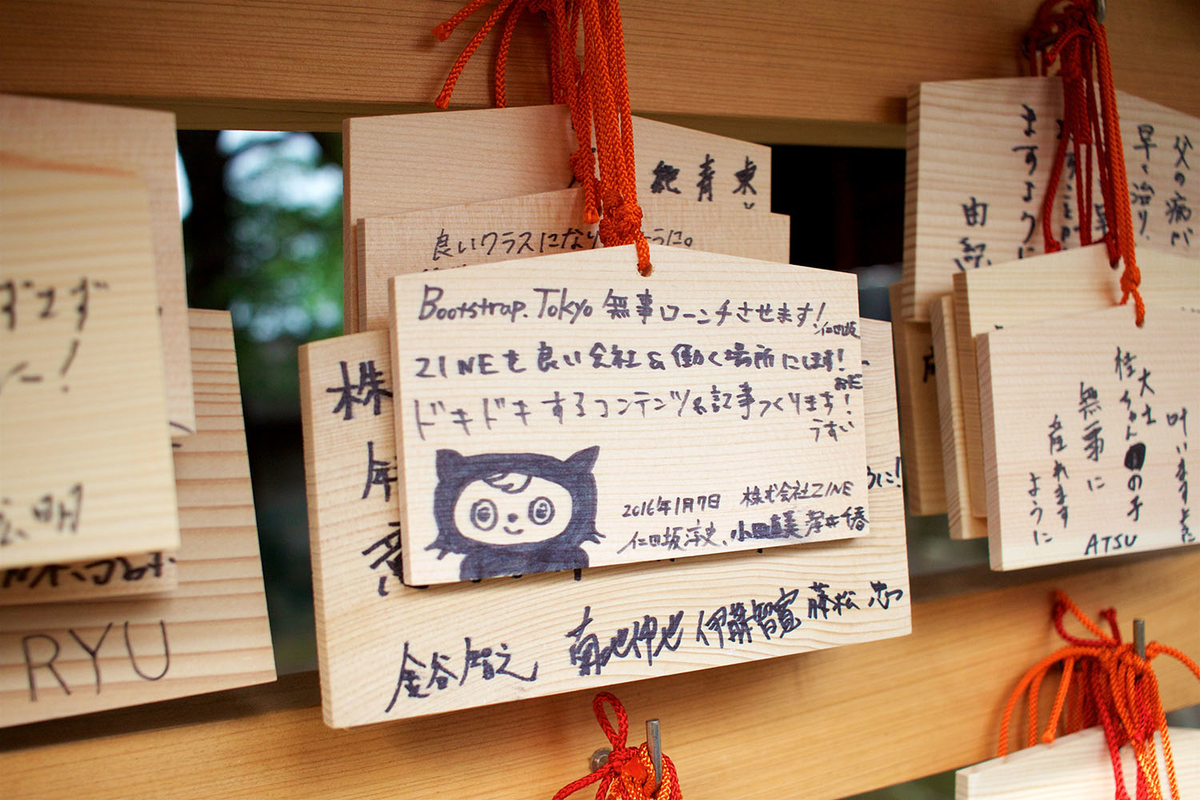 Bootstrap.Tokyo 無事ローンチさせます!
仁田坂
ZINEを良い会社&働く場所にします!
おだ
ドキドキするコンテンツ&記事つくります!
うすい
2016年1月7日 株式会社ZINE
仁田坂淳史、小田直美
株
年
金谷智之 菊地伸也 伊藤智寛 藤松 忠
うに!
良いクラスになり ように。
東
青
父の病が
早く治り、
ますように
由紀
叶いますよ
大士
桂ちゃんの子
無事に
産れます
ように
ATSU
明
RYU